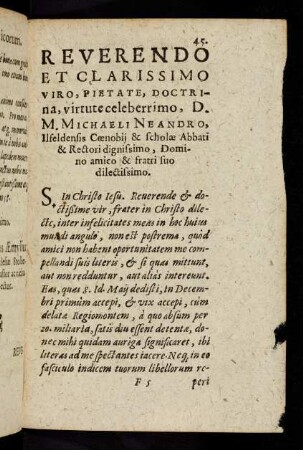 45.
REVERENDO
ET CLARISSIMO
VIRO, PIETATE, DOCTRI-
na, virtute celeberrimo, D.
M. MICHAELI NEANDRO,
Ilfeldensis Cœnobij & scholæ Abbati
& Rectori dignissimo, Domi-
no amico & fratri suo
dilectissimo.
S. In Christo Iesu. Reverende & do-
ctissime vir, frater in Christo dile-
cte, inter infelicitates meas in hoc huius
mundi angulo, non est postrema, quòd
amici non habent oportunitatem me com-
pellandi suis literis, & si quas mittunt,
aut non redduntur, aut aliàs intereunt.
Eas, quas 8. Id. Maij dedisti, in Decem-
bri primùm accepi, & vix accepi, cùm
delatæ Regiomontem, à quo absum per
20. miliaria, satis diu essent detentæ, do-
nec mihi quidam auriga significaret, ibi
literas ad me spectantes iacere. Neq; in eo
fasciculo indicem tuorum libellorum re-
F 5 peri